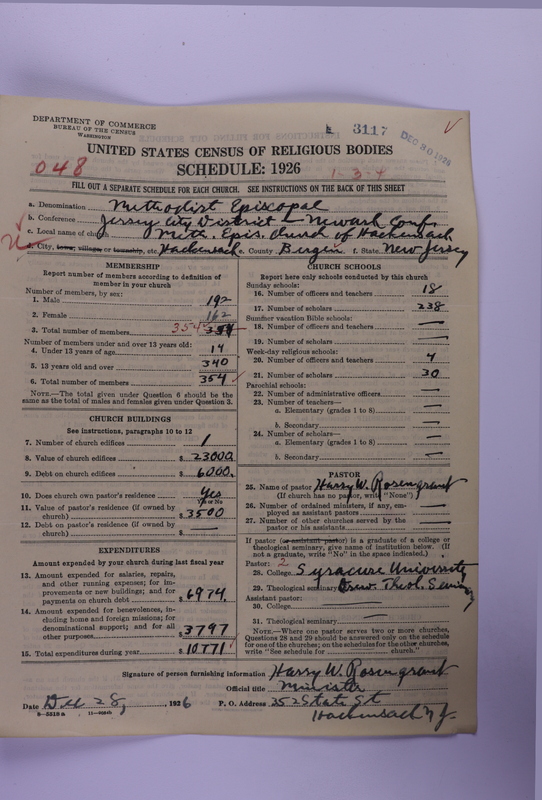 DEPARTMENT OF COMMERCE
BUREAU OF THE CENSUS
WASHINGTON
3117
DEC 30 1926
UNITED STATES CENSUS OF RELIGIOUS BODIES
048
SCHEDULE: 1926
1-3-4
FILL OUT A SEPARATE SCHEDULE FOR EACH CHURCH. SEE INSTRUCTIONS ON THE BACK OF THIS SHEET
a. Denomination Methodist Episcopal
b. Conference Jersey City District - Newark Conf.
c. Local name of church Meth. Epis. Church of Hackensack
d. City, town, village, or township, etc. Hackensack e. County Bergen f. State New Jersey
MEMBERSHIP
Report number of members according to definition of
member in your church
Number of members, by sex:
1. Male 192
2. Female 162
3. Total number of members 354 354
Number of members under and over 13 years old:
4. Under 13 years of age 14
5. 13 years old and over 340
6. Total number of members 354
NOTE.—The total given under Question 6 should be the
same as the total of males and females given under Question 3.
CHURCH BUILDINGS
See instructions, paragraphs 10 to 12
7. Number of church edifices 1
8. Value of church edifices $23000.
9. Debt on church edifices $6000.
10. Does church own pastor's residence Yes
Yes or No
11. Value of pastor's residence (if owned by
church) $3500
12. Debt on pastor's residence (if owned by
church) $ —
EXPENDITURES
Amount expended by your church during last fiscal year
13. Amount expended for salaries, repairs,
and other running expenses; for im-
provements or new buildings; and for
payments on church debt $6974.
14. Amount expended for benevolences, in-
cluding home and foreign missions; for
denominational support; and for all
other purposes $3797
15. Total expenditures during year $10771
CHURCH SCHOOLS
Report here only schools conducted by this church
Sunday schools:
16. Number of officers and teachers 18
17. Number of scholars 238
Summer vacation Bible schools:
18. Number of officers and teachers —
19. Number of scholars —
Week-day religious schools:
20. Number of officers and teachers 4
21. Number of scholars 30
Parochial schools:
22. Number of administrative officers —
23. Number of teachers—
a. Elementary (grades 1 to 8) —
b. Secondary —
24. Number of scholars—
a. Elementary (grades 1 to 8) —
b. Secondary —
PASTOR
25. Name of pastor Harry W. Rosengrant
(If church has no pastor, write "None")
26. Number of ordained ministers, if any, em-
ployed as assistant pastors —
27. Number of other churches served by the
pastor or his assistants —
If pastor (or assistant pastor) is a graduate of a college or
theological seminary, give name of institution below. (If
not a graduate, write "No" in the space indicated.)
Pastor: 2
28. College Syracuse University
29. Theological seminary Drew Theol. Seminary
Assistant pastor:
30. College —
31. Theological seminary —
NOTE.—Where one pastor serves two or more churches,
Questions 28 and 29 should be answered only on the schedule
for one of the churches; on the schedules for the other churches,
write "See schedule for church."
Signature of person furnishing information Harry W. Rosengrant
Official title Minister
Date Dec 28, 1926 P. O. Address 352 State St
Hackensack N. J.